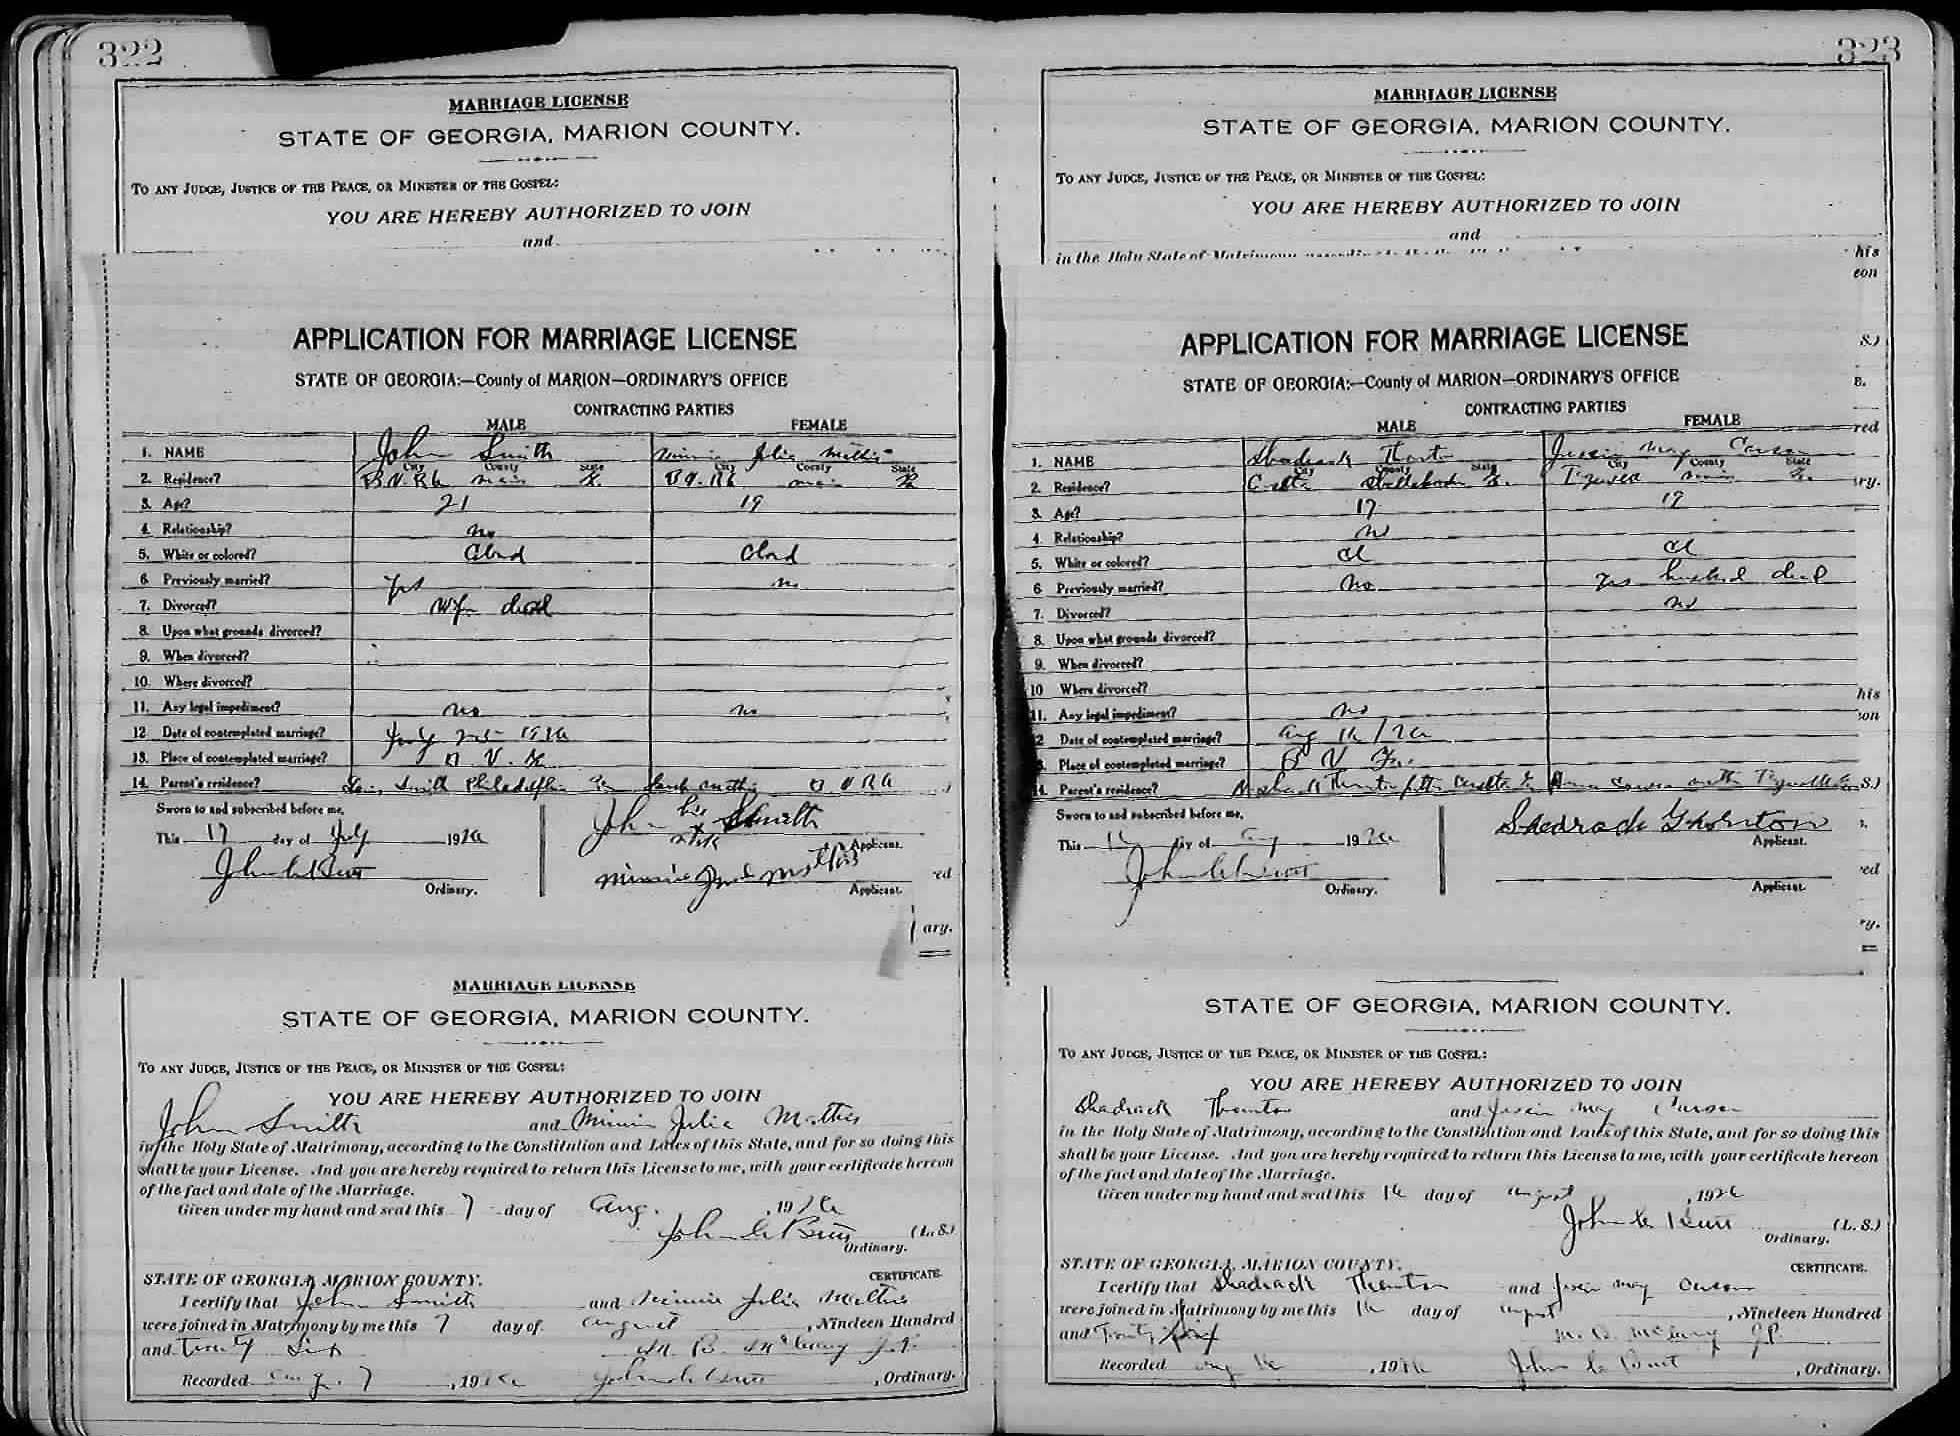 322
MARRIAGE LICENSE
STATE OF GEORGIA, MARION COUNTY.
TO ANY JUDGE, JUSTICE OF THE PEACE, OR MINISTER OF THE GOSPEL:
YOU ARE HEREBY AUTHORIZED TO JOIN
and
APPLICATION FOR MARRIAGE LICENSE
STATE OF GEORGIA:—County of MARION—ORDINARY'S OFFICE
CONTRACTING PARTIES
MALE FEMALE
1. NAME John Smith Minnie Julia Mathis
City County State City County State
2. Residence? B.V. R6 B.V. R6
3. Age? 21 19
4. Relationship? no
5. White or colored? Clord Clord
6. Previously married? yes no
7. Divorced? wife dead
8. Upon what grounds divorced?
9. When divorced?
10. Where divorced?
11. Any legal impediment? no no
12 Date of contemplated marriage? July 1926
13. Place of contemplated marriage? B. V. Ga
14. Parent's residence? Smith Philadelphia Mathis B V R6
Sworn to and subscribed before me,
This 17 day of July 1926
John C Butt
Ordinary.
John his x mark Smith
Applicant.
Minnie Mathis
Applicant.
ed
ary.
MARRIAGE LICENSE
STATE OF GEORGIA, MARION COUNTY.
TO ANY JUDGE, JUSTICE OF THE PEACE, OR MINISTER OF THE GOSPEL:
YOU ARE HEREBY AUTHORIZED TO JOIN
John Smith and Minnie Julia Mathis
in the Holy State of Matrimony, according to the Constitution and Laws of this State, and for so doing this
shall be your License. And you are hereby required to return this License to me, with your certificate hereon
of the fact and date of the Marriage.
Given under my hand and seal this 7 day of Aug. , 1926
John C Butt (L. S.)
Ordinary.
STATE OF GEORGIA, MARION COUNTY. CERTIFICATE.
I certify that John Smith and Minnie Julia Mathis
were joined in Matrimony by me this 7 day of August , Nineteen Hundred
and Twenty Six M. B. McCrary J.P.
Recorded Aug. 7 , 1926 John C Butt , Ordinary.
323
MARRIAGE LICENSE
STATE OF GEORGIA, MARION COUNTY.
TO ANY JUDGE, JUSTICE OF THE PEACE, OR MINISTER OF THE GOSPEL:
YOU ARE HEREBY AUTHORIZED TO JOIN
and
in the Holy State of Matrimony
his
eon
APPLICATION FOR MARRIAGE LICENSE
S.)
STATE OF GEORGIA:—County of MARION—ORDINARY'S OFFICE
E.
CONTRACTING PARTIES
MALE FEMALE
red
1. NAME Shadrack Thornton Jessie May Carson
City County State City County State
2. Residence? Ga. Tazewell Ga.
ry.
3. Age? 17 17
4. Relationship? no
5. White or colored? Cl Cl
6 Previously married? no yes husband dead
7. Divorced? no
8. Upon what grounds divorced?
9. When divorced?
10 Where divorced?
his
11. Any legal impediment? no
on
12 Date of contemplated marriage? Aug 16 /26
13. Place of contemplated marriage? B V Ga.
14. Parent's residence? Thornton Carson Tazewell Ga
S.)
Sworn to and subscribed before me,
This 16 day of Aug 1926
John C Butt
Ordinary.
Shedrack Thornton
Applicant.
Applicant.
red
ry.
STATE OF GEORGIA, MARION COUNTY.
TO ANY JUDGE, JUSTICE OF THE PEACE, OR MINISTER OF THE GOSPEL:
YOU ARE HEREBY AUTHORIZED TO JOIN
Shadrack Thornton and Jessie May Carson
in the Holy State of Matrimony, according to the Constitution and Laws of this State, and for so doing this
shall be your License. And you are hereby required to return this License to me, with your certificate hereon
of the fact and date of the Marriage.
Given under my hand and seal this 16 day of August , 1926
John C Butt (L. S.)
Ordinary.
STATE OF GEORGIA, MARION COUNTY. CERTIFICATE.
I certify that Shadrack Thornton and Jessie May Carson
were joined in Matrimony by me this 16 day of August , Nineteen Hundred
and Twenty Six M. B. McCrary J.P.
Recorded Aug 16 , 1926 John C Butt , Ordinary.